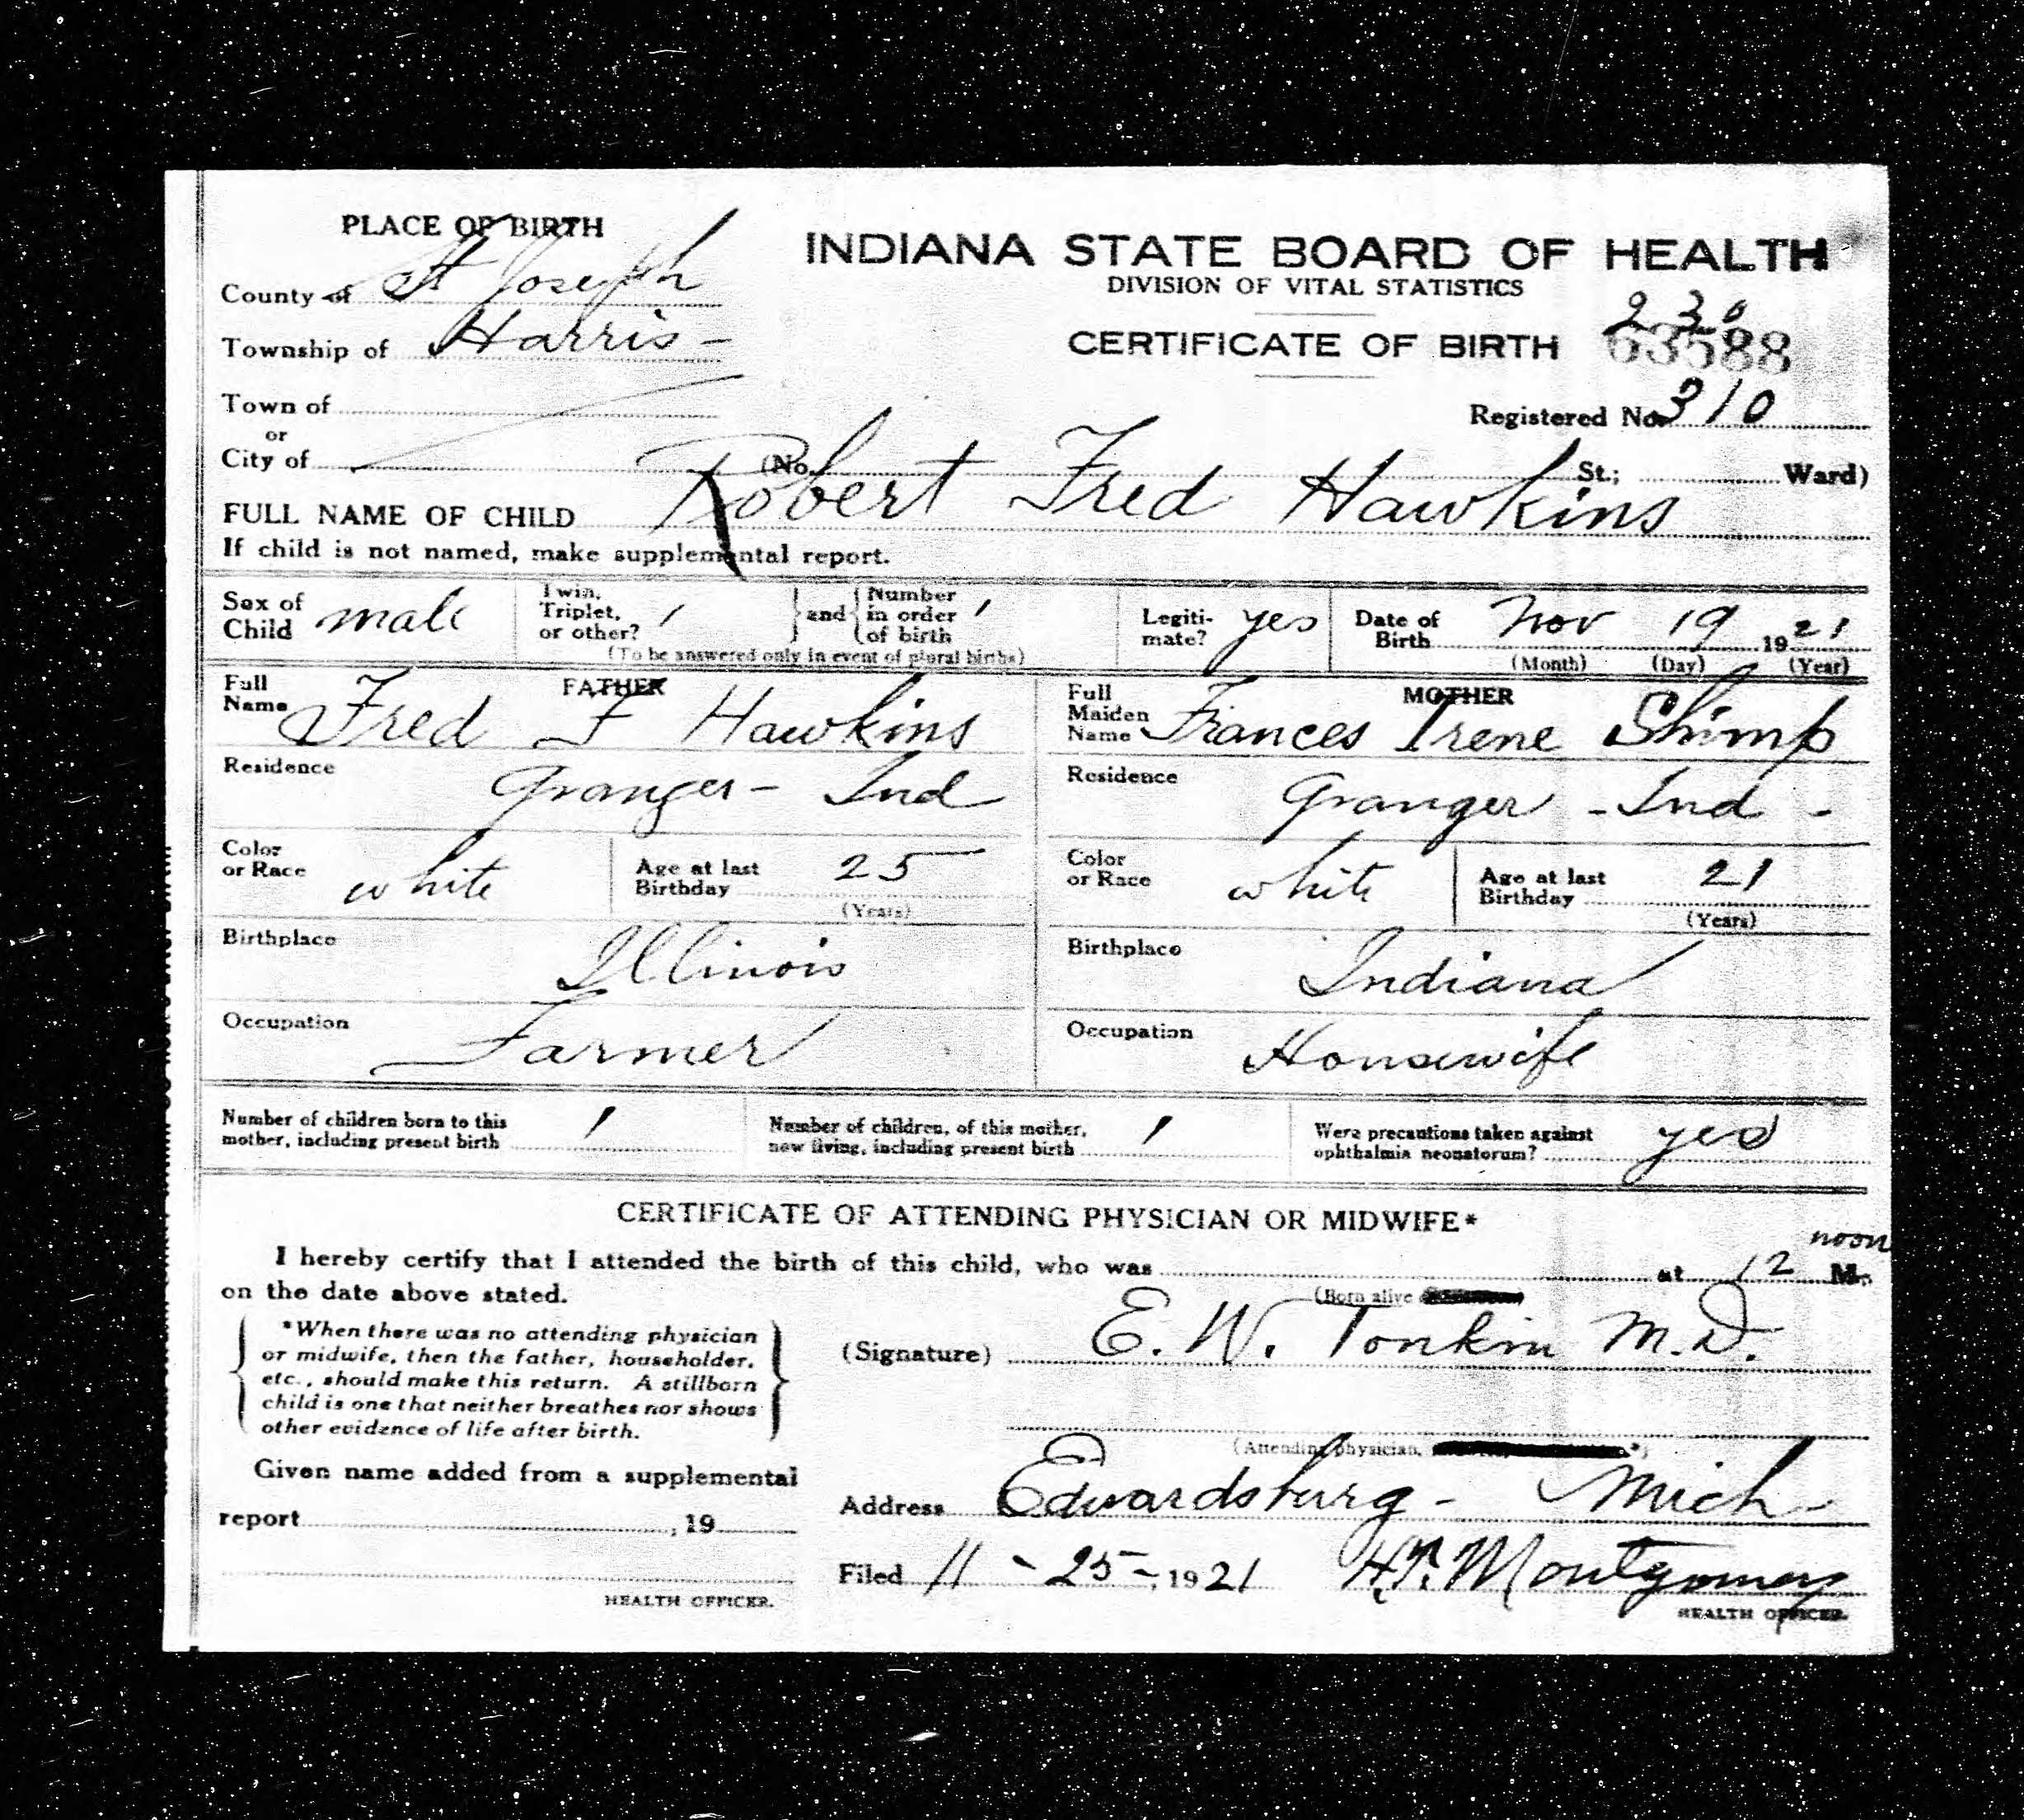 PLACE OF BIRTH
County of St Joseph
Township of Harris -
Town of
or
City of
INDIANA STATE BOARD OF HEALTH
DIVISION OF VITAL STATISTICS
CERTIFICATE OF BIRTH
230
63588
Registered No. 310
(No. St.; Ward)
FULL NAME OF CHILD Robert Fred Hawkins
If child is not named, make supplemental report.
Sex of Child male
Twin, Triplet, or other? 1 and Number in order of birth 1
(To be answered only in event of plural births)
Legitimate? yes
Date of Birth Nov 19 1921
(Month) (Day) (Year)
FATHER
Full Name Fred F Hawkins
Residence Granger - Ind
Color or Race white
Age at last Birthday 25
(Years)
Birthplace Illinois
Occupation Farmer
MOTHER
Full Maiden Name Frances Irene Shimp
Residence Granger - Ind -
Color or Race white
Age at last Birthday 21
(Years)
Birthplace Indiana
Occupation Housewife
Number of children born to this mother, including present birth 1
Number of children, of this mother, now living, including present birth 1
Were precautions taken against ophthalmia neonatorum? yes
CERTIFICATE OF ATTENDING PHYSICIAN OR MIDWIFE*
I hereby certify that I attended the birth of this child, who was at 12 M. noon
(Born alive
on the date above stated.
*When there was no attending physician
or midwife, then the father, householder,
etc., should make this return. A stillborn
child is one that neither breathes nor shows
other evidence of life after birth.
(Signature) E. W. Tonkin M.D.
(Attending physician, *)
Given name added from a supplemental
report , 19
HEALTH OFFICER.
Address Edwardsburg - Mich -
Filed 11 - 25 -, 1921 Montgomery
HEALTH OFFICER.